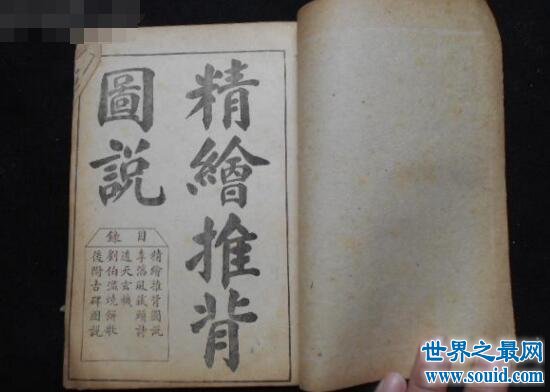 精繪推背
圖說
目錄
精繪推背圖說
李淳風藏頭詩
透天玄機
劉伯溫燒餅歌
後附古碑圖說
世界之最网
www.souid.com